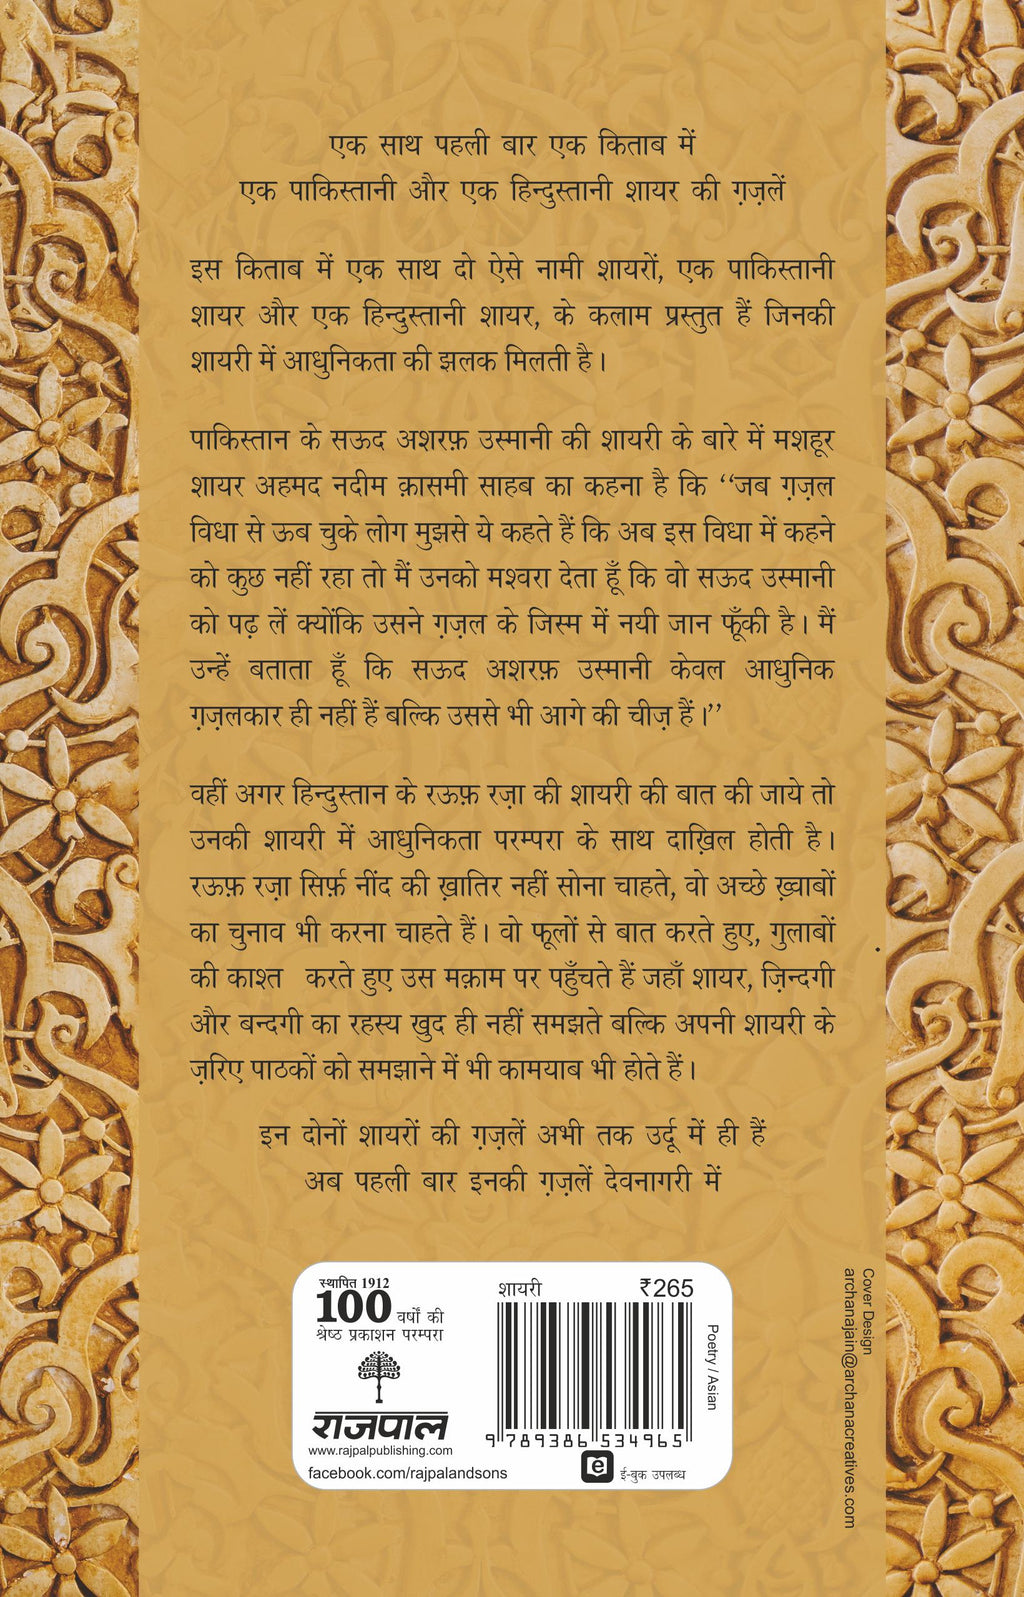 एक साथ पहली बार एक किताब में
एक पाकिस्तानी और एक हिन्दुस्तानी शायर की ग़ज़लें
इस किताब में एक साथ दो ऐसे नामी शायरों, एक पाकिस्तानी
शायर और एक हिन्दुस्तानी शायर, के कलाम प्रस्तुत हैं जिनकी
शायरी में आधुनिकता की झलक मिलती है।
पाकिस्तान के सऊद अशरफ़ उस्मानी की शायरी के बारे में मशहूर
शायर अहमद नदीम क़ासमी साहब का कहना है कि ‘‘जब ग़ज़ल
विधा से ऊब चुके लोग मुझसे ये कहते हैं कि अब इस विधा में कहने
को कुछ नहीं रहा तो मैं उनको मश्वरा देता हूँ कि वो सऊद उस्मानी
को पढ़ लें क्योंकि उसने ग़ज़ल के जिस्म में नयी जान फूँकी है। मैं
उन्हें बताता हूँ कि सऊद अशरफ़ उस्मानी केवल आधुनिक
ग़ज़लकार ही नहीं हैं बल्कि उससे भी आगे की चीज़ हैं।’’
वहीं अगर हिन्दुस्तान के रऊफ़ रज़ा की शायरी की बात की जाये तो
उनकी शायरी में आधुनिकता परम्परा के साथ दाख़िल होती है।
रऊफ़ रज़ा सिर्फ़ नींद की ख़ातिर नहीं सोना चाहते, वो अच्छे ख़्वाबों
का चुनाव भी करना चाहते हैं। वो फूलों से बात करते हुए, गुलाबों
की काश्त करते हुए उस मक़ाम पर पहुँचते हैं जहाँ शायर, ज़िन्दगी
और बन्दगी का रहस्य खुद ही नहीं समझते बल्कि अपनी शायरी के
ज़रिए पाठकों को समझाने में भी कामयाब भी होते हैं।
इन दोनों शायरों की ग़ज़लें अभी तक उर्दू में ही हैं
अब पहली बार इनकी ग़ज़लें देवनागरी में
स्थापित 1912
100 वर्षों की
श्रेष्ठ प्रकाशन परम्परा
राजपाल
www.rajpalpublishing.com
facebook.com/rajpalandsons
शायरी ₹265
9 789386 534965
e ई-बुक उपलब्ध
Poetry / Asian
Cover Design
archanajain@archanacreatives.com